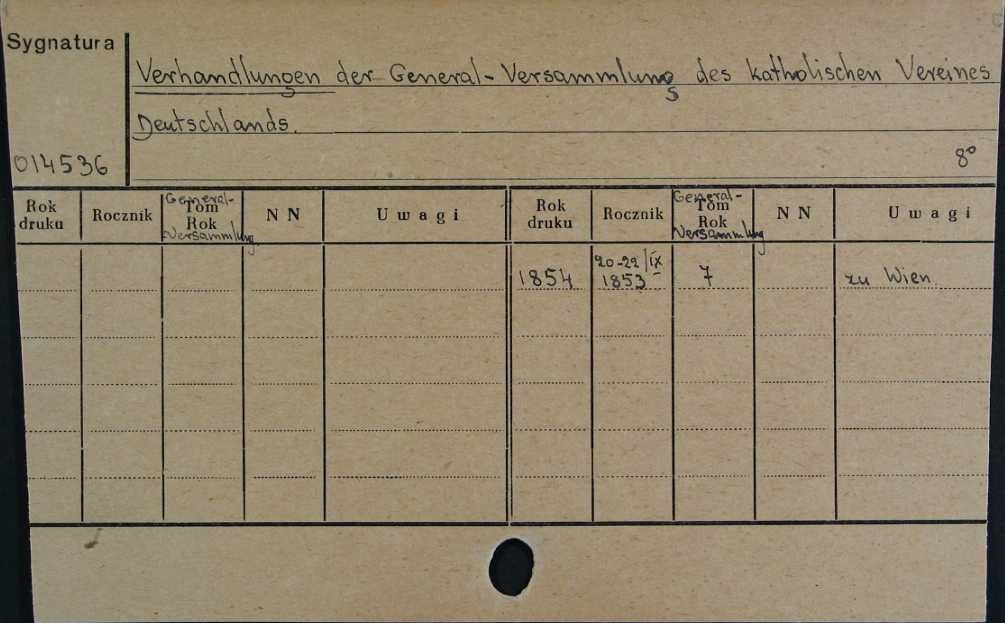 Sygnatura
Verhandlungen der General-Versammlung des katholischen Vereines
Deutschlands.
014536
8°
Rok druku Rocznik General-Versammlung Tom Rok NN Uwagi Rok druku Rocznik General-Versammlung Tom Rok NN Uwagi
1854 20-22/IX 1853 7 zu Wien